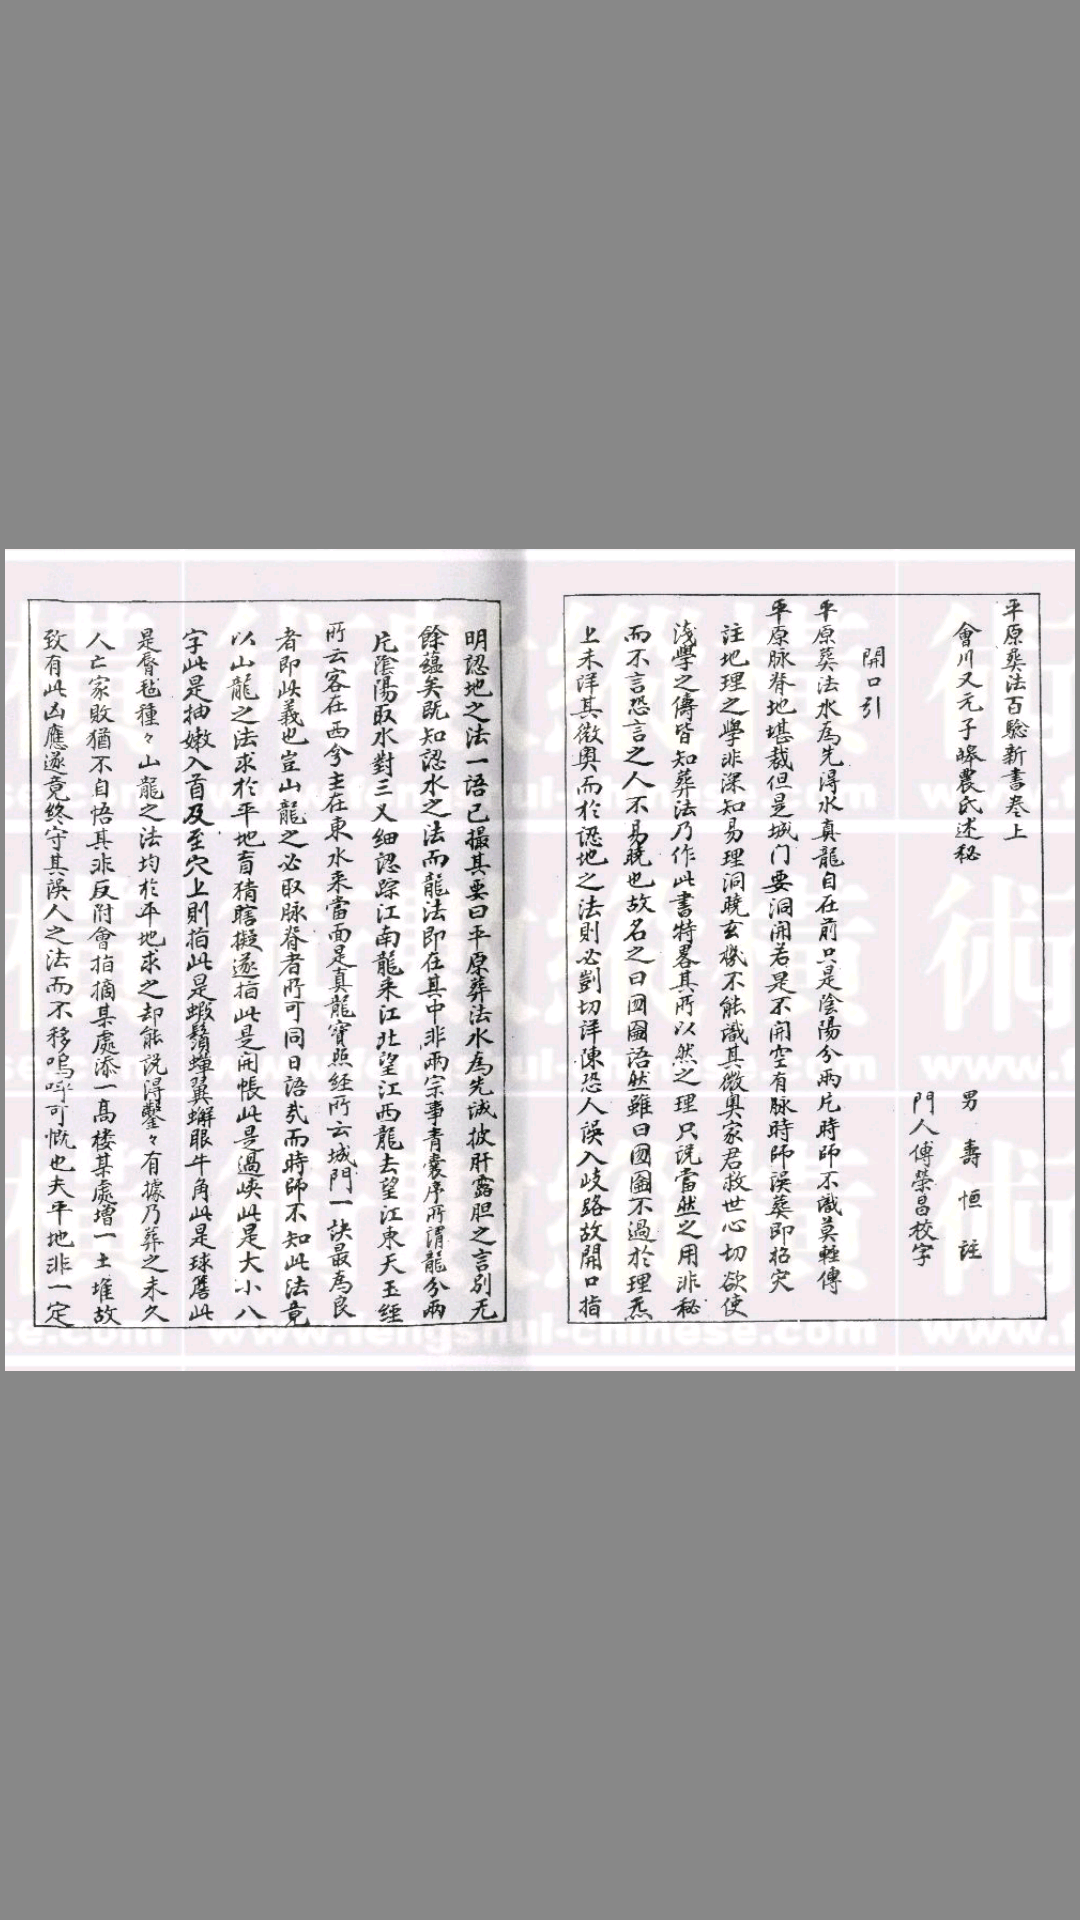 平原葬法百驗新書卷上
會川又元子皞農氏述秘
男壽恒註
門人傅榮昌校字
開口引
平原葬法水為先得水真龍自在前只是陰陽分兩片時師不識莫輕傳
平原脉脊地堪裁但是城门要洞開若是不開空有脉時師误葬即招灾
註地理之學非深知易理洞曉玄機不能識其微奥家君救世心切欲使
淺學之儔皆知葬法乃作此書特畧其所以然之理只说當然之用非秘
而不言恐言之人不易曉也故名之曰囫圇語然雖曰囫圇不過於理炁
上未詳其微奥而於認地之法則必剴切详陳恐人误入歧路故開口指
明認地之法一语已撮其要曰平原葬法水為先诚披肝露胆之言别无
餘蕴矣既知認水之法而龍法即在其中非兩宗事青囊序所谓龍分兩
片陰陽取水對三叉细認踪江南龍来江北望江西龍去望江東天玉經
所云客在西兮主在東水来當面是真龍寳照经所云城門一訣最為良
者即此義也豈山龍之必取脉脊者所可同日語哉而時師不知此法竟
以山龍之法求於平地盲猜瞎擬遂指此是開帳此是過峽此是大小八
字此是抽嫩入首及至穴上則指此是蝦鬚蟬翼蠏眼牛角此是球簷此
是唇毡種々山龍之法均於平地求之却能说得鑿々有據乃葬之未久
人亡家敗猶不自悟其非反附會指摘某處添一高楼某處增一土堆故
致有此凶應遂竟终守其误人之法而不移嗚呼可慨也夫平地非一定
www.fengshui-chinese.com
術數縱橫